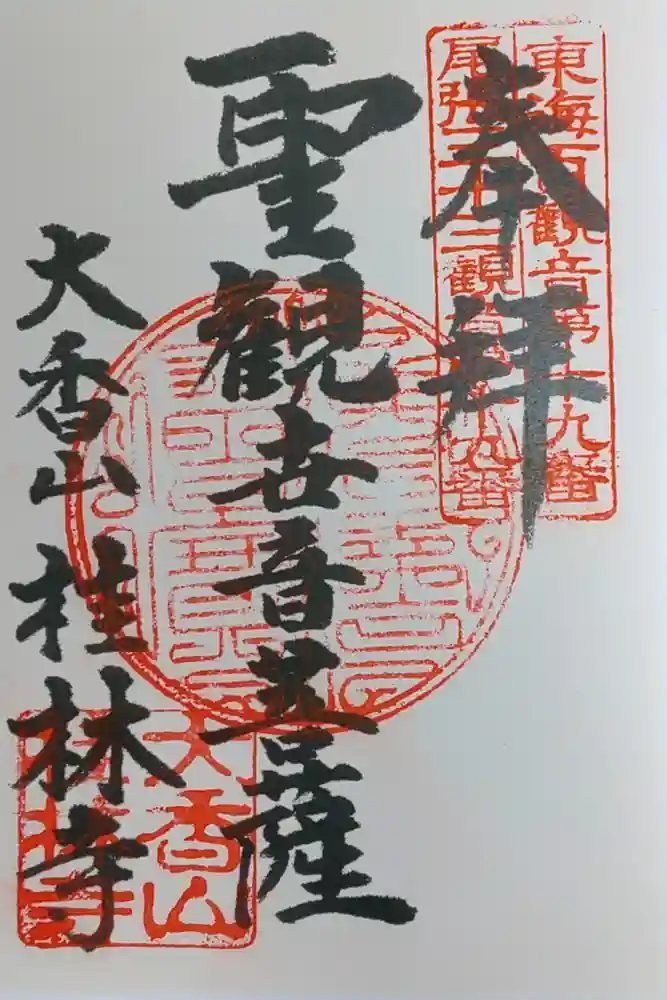 東海百觀音第十九番
尾張三十三觀音第十九番
奉拝
聖觀世音菩薩
大香山 桂林寺
大香山
桂林寺